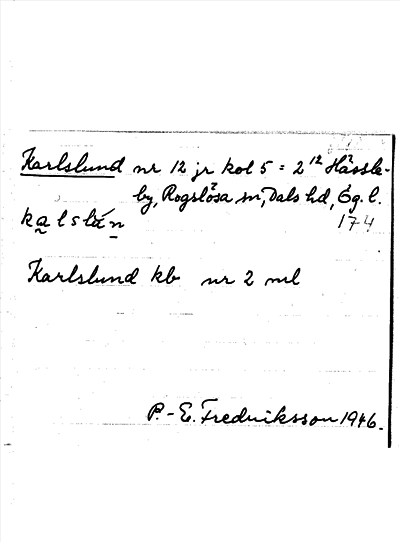 Karlslund nr 12 jr kol 5 = 2¹² Hässle-
by, Rogslösa sn, Dals hd, Ög. l.
kalslán 174
Karlslund kb nr 2 ml
P.-E. Fredriksson 1946.